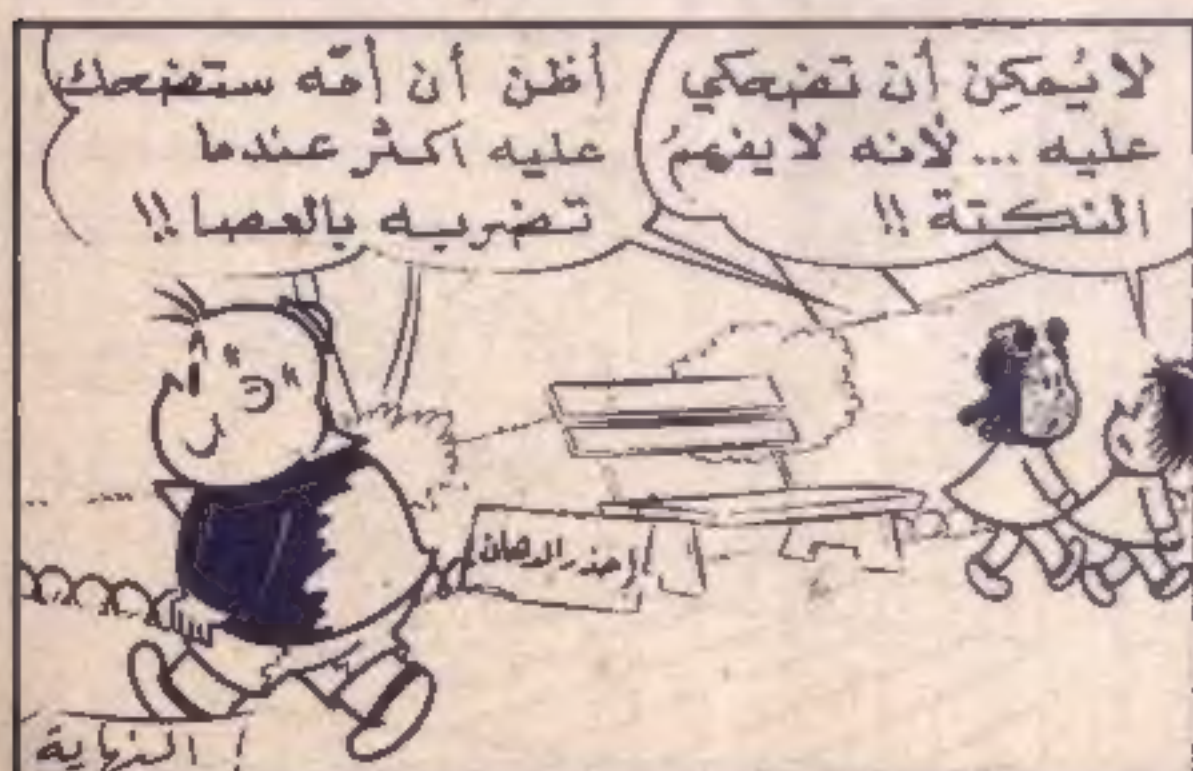 لا يُمكِن أن تضحكي
عليه ... لأنه لا يفهمُ
النكتة !!
أظن أن أمّه ستضحك
عليه أكثر عندما
تضربه بالعصا !!
إحذر الدهان
النهاية